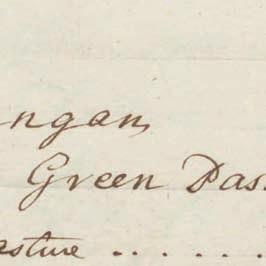 ngan
Green Pas
asture . . . . . .